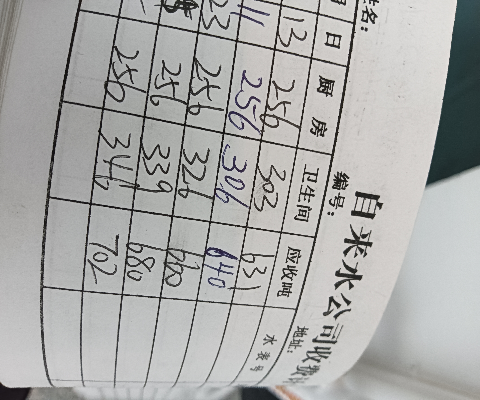 自来水公司收费
姓名: 编号: 地址:
月 日 厨房 卫生间 应收吨 水表号
13 256 303 631
11 256 306 640
23 256 326
256 339 680
256 346 702